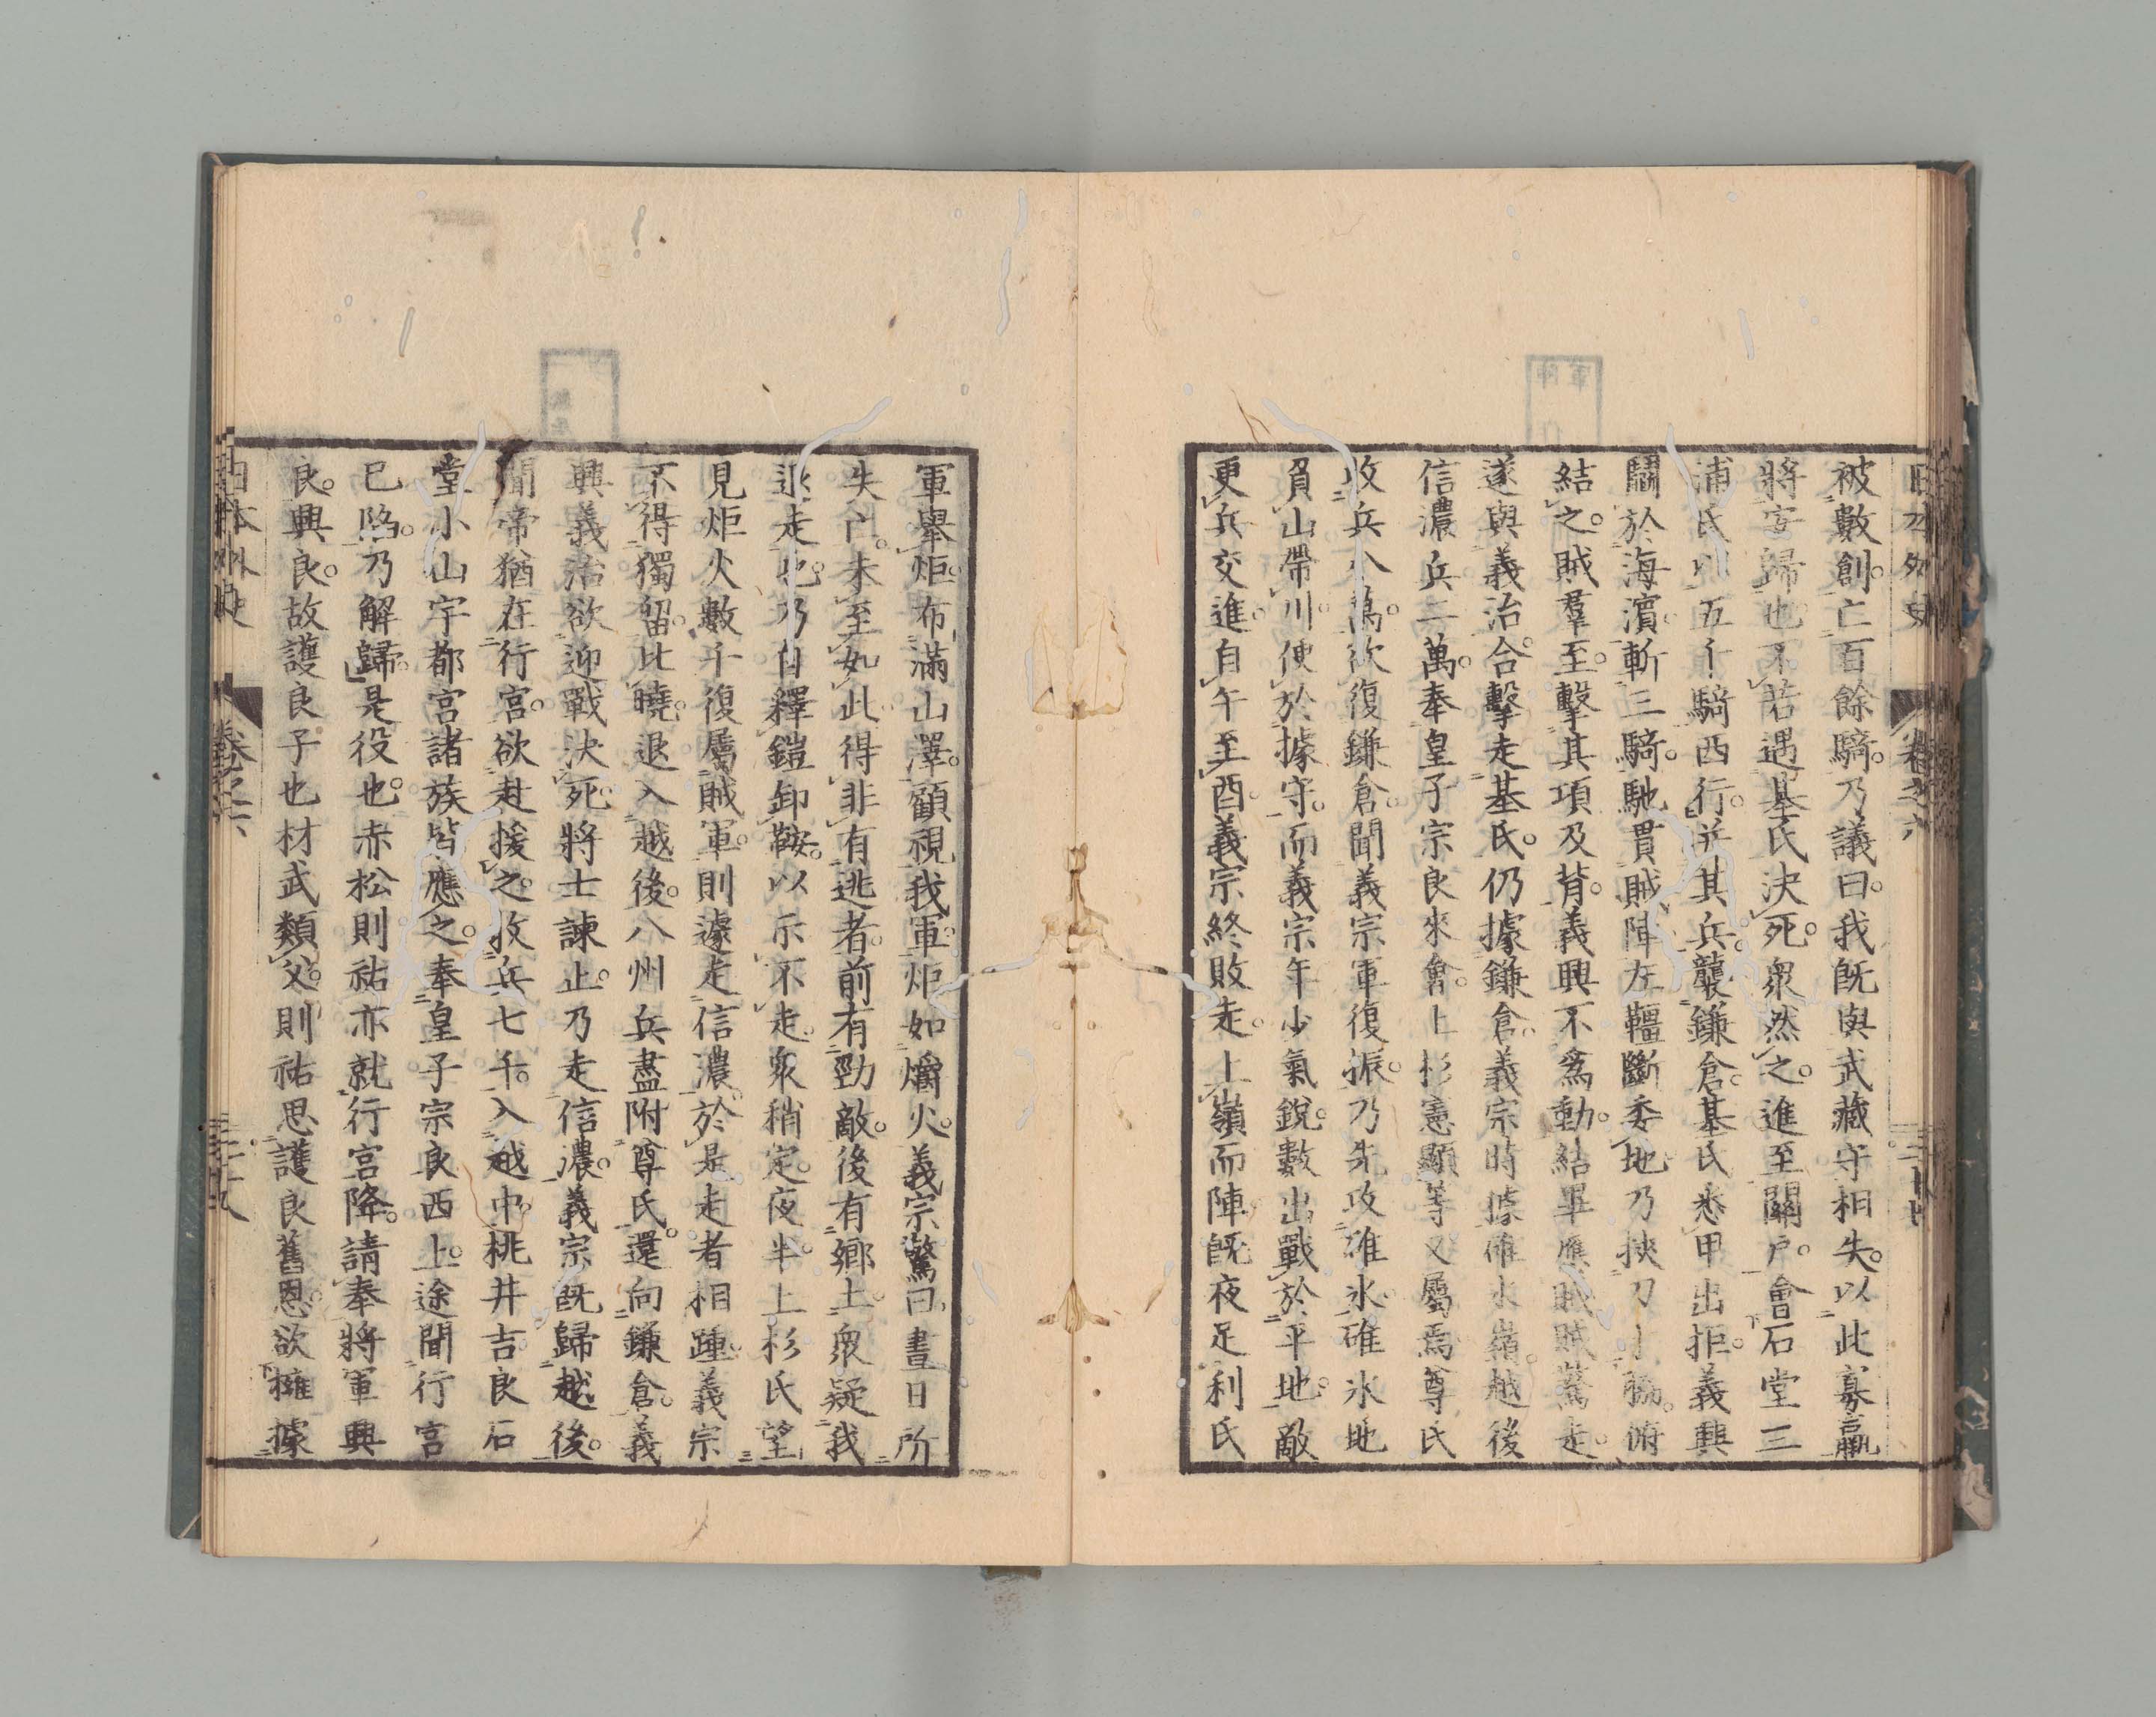 日本外史 卷之六
被數創。亡百餘騎。乃議曰。我既與武藏守相失。以此寡羸
將安歸也。不若遇基氏決死。衆然之。進至關戶。會石堂三
浦氏以五千騎西行。并其兵。襲鎌倉。基氏悉甲出拒。義興
鬭於海濵。斬三騎。馳貫賊陣。左韁斷委地。乃挾刀 俯
結之。賊羣至。擊其項及背。義興不爲動。結畢應賊。賊驚走。
遂與義治合擊走基氏。仍據鎌倉。義宗時據碓氷嶺。越後
信濃兵二萬。奉皇子宗良來會。上杉憲顯等又屬焉。尊氏
收兵八萬。欲復鎌倉。聞義宗軍復振。乃先攻碓氷。碓氷地
負山帶川。便於據守。而義宗年少氣銳。數出戰於平地。敵
更兵交進。自午至酉。義宗終敗走。上嶺而陣。既夜足利氏
軍舉炬。布滿山澤。顧視我軍。炬如爝火。義宗驚曰。晝日所
失亡。未至如此。得非有逃者。前有勁敵。後有鄉土。衆疑我
逃走也。乃自釋鎧卸鞍。以示不走。衆稍定。夜半。上杉氏望
見炬火數千復屬賊軍。則遽走信濃。於是走者相踵。義宗
不得獨留。比曉。退入越後。八州兵盡附尊氏。還向鎌倉。義
興義治欲迎戰決死。將士諫止。乃走信濃。義宗既歸越後。
聞帝猶在行宮。欲赴援之。收兵七千。入越中。桃井吉良石
堂小山宇都宮諸族皆應之。奉皇子宗良西上。途聞行宮
已陷。乃解歸。是役也。赤松則祐亦就行宮降。請奉將軍興
良。興良。故護良子也材武類父。則祐思護良舊恩。欲擁據
日本外史 卷之六